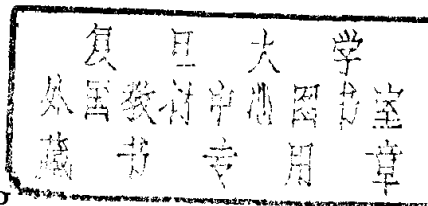 复旦大学
外国教材中心图书室
藏书专用章